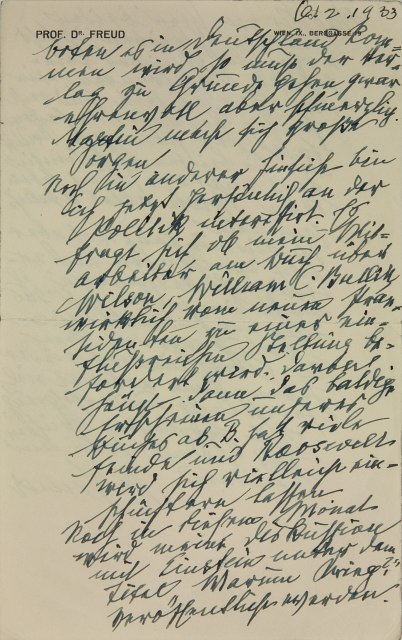 Oct 2. 1933
PROF. DR. FREUD WIEN, IX., BERGGASSE 19
boten es in Deutschland kom-
men wird, so muss der Ver-
lag zu Grunde gehen, zwar
ehrenvoll aber schmerzlich.
macht sich große
Sorgen
Noch in anderer Hinsicht bin
ich jetzt persönlich an der
Politik interessirt. Es
fragt sich ob mein Mit-
arbeiter am Buch über
Wilson, William C. Bullitt
wirklich vom neuen Präsi-
denten zu einer ein-
flußreichen Stellung be-
fördert wird. Davon
hängt dann das baldige
Erscheinen unseres
Buches ab. B. hat viele
Feinde und Roosevelt
wird sich vielleicht ein-
schüchtern lassen
Noch in diesem Monat
wird meine Diskussion
mit Einstein unter dem
Titel "Warum Krieg?"
veröffentlicht werden.